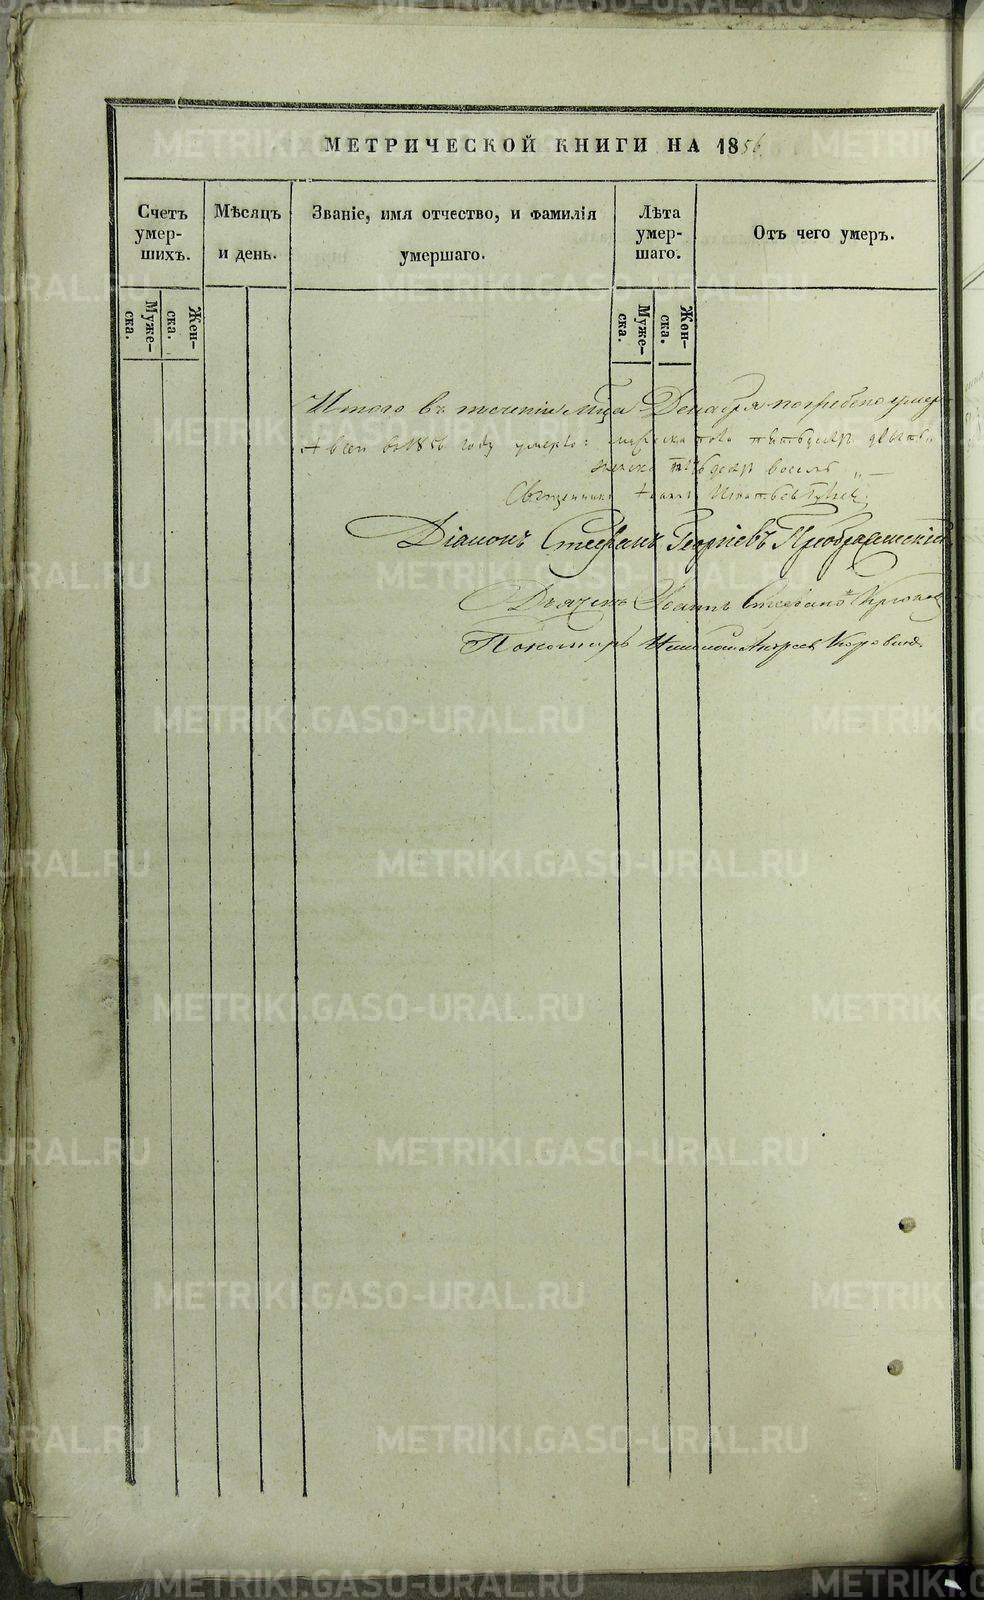 МЕТРИЧЕСКОЙ КНИГИ НА 1856
Счетъ умер-шихъ.
Мѣсяцъ и день.
Званіе, имя отчество, и фамилія умершаго.
Лѣта умер-шаго.
Отъ чего умеръ.
Муже-ска.
Жен-ска.
Муже-ска.
Жен-ска.
Итого въ теченіи мца Декабря погребено
А всего въ 1856 году умерло: мужеска пола пятьдесят девять
женска пятьдесят восемь
Священникъ
Діаконъ Стефанъ Георгіевъ Преображенскій
Дьячекъ Іоаннъ Стефановъ
Пономарь Андреев
METRIKI.GASO-URAL.RU